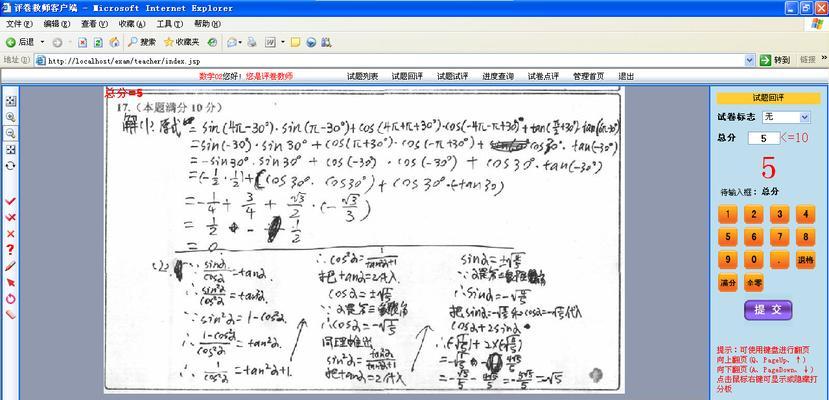 评卷教师客户端 - Microsoft Internet Explorer
文件(F) 编辑(E) 查看(V) 收藏(A) 工具(T) 帮助(H)
后退 搜索 收藏夹
地址(D) http://localhost/exam/teacher/index.jsp 转到 链接 »
数学02您好！您是评卷教师 试题列表 试题回评 试题试评 进度查询 试卷点评 管理首页 退出
总分=5
17.（本题满分10分）
解(1)原式=sin(4π-30°)·sin(π-30°)+cos(4π+π+30°)·cos(-4π-π+30°)+tan(π/2+30°)·tan(
=sin(-30°)·sin30°+cos(π+30°)·cos(-π+30°)+ cos30°·tan(-30°)
=-sin30°·sin30°+cos(-30°)·cos(-30°)+cos30°·tan(-30°)
=(-1/2·1/2)+(cos30°·cos30°)+cos30°·tan30)
=-1/4+3/4+√3/2·(-√3/3)
=1/2 - 1/2
=0
(2) ∵sinα/cosα=tanα
∴sin²α/cos²α=tan²α
∵sin²α=1-cos²α
∴1-cos²α/cos²α=tan²α
∴1/cos²α=tan²α+1.
∴cos²α=1/tan²α+1
把tanα=2代入
cosα=±√5/5
∴cosα=-√5/5
同理推出
sin²α=tan²α/tan²α+1
把tanα=2代入
∴sinα=-
cosα+2sinα
=-√5/5-4√5/5=-5√5/5=-√5
试题回评
试卷标志 无
总分 5 <=10
5
待输入框：总分
1 2 3 4
5 6 7 8
9 0 . 退格
满分 余零
提 交
提示：可使用键盘进行翻页
向上翻页(Q、PageUp、↑)
向下翻页(A、PageDown、↓)
点击鼠标右键可显示或隐藏打
分板